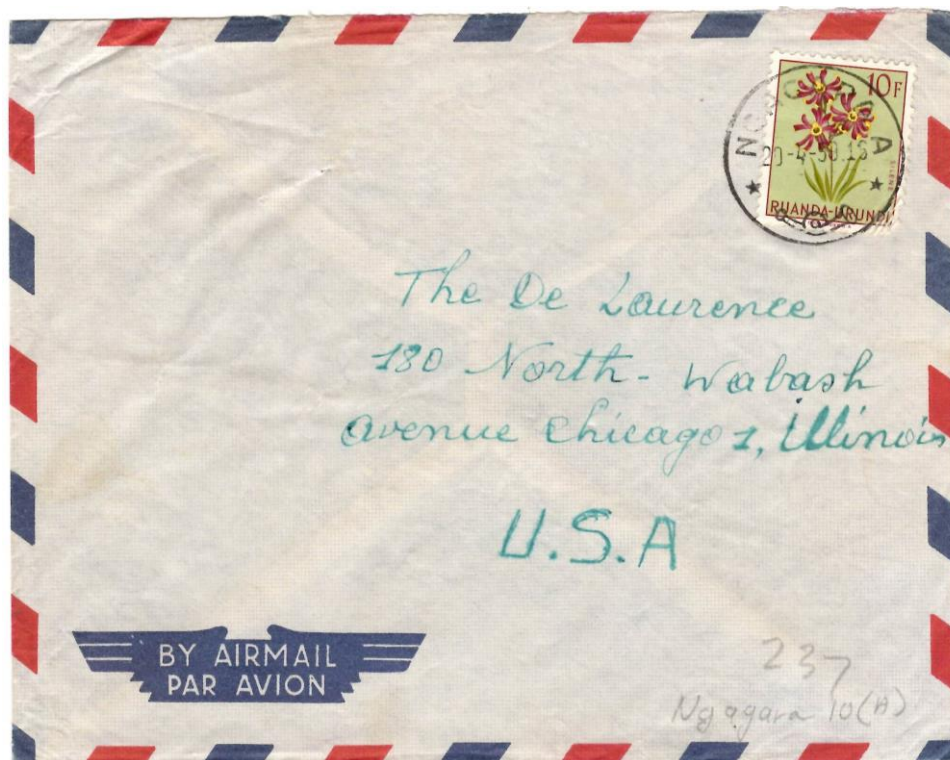 10F
20-4-50.15
SILENE
RUANDA-URUNDI
The De Laurence
180 North - Wabash
avenue Chicago 1, Illinois
U.S.A
BY AIRMAIL
PAR AVION
237
Ngagara 10(A)